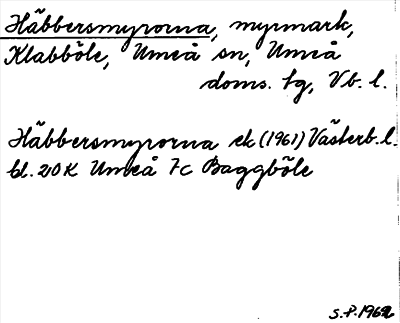 Häbbersmyrorna, myrmark,
Klabböle, Umeå sn, Umeå
doms. tg, Vb. l.
Häbbersmyrorna ek (1961) Västerb. l.
bl. 20K Umeå 7c Baggböle
S.P. 1962